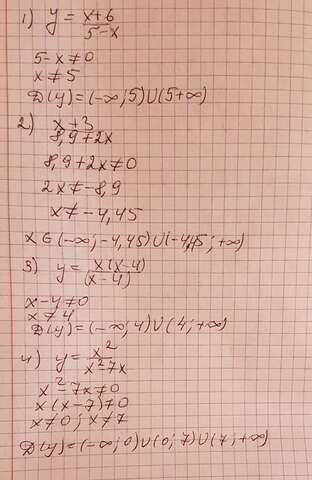 1) y = x+6 / 5-x
5-x≠0
x≠5
D(y)=(-∞;5)∪(5+∞)
2) x+3 / 8,9+2x
8,9+2x≠0
2x≠-8,9
x≠-4,45
x∈(-∞;-4,45)∪(-4,45;+∞)
3) y = x(x-4) / (x-4)
x-4≠0
x≠4
D(y)=(-∞;4)∪(4;+∞)
4) y = x² / x²-7x
x²-7x≠0
x(x-7)≠0
x≠0; x≠7
D(y)=(-∞;0)∪(0;7)∪(7;+∞)